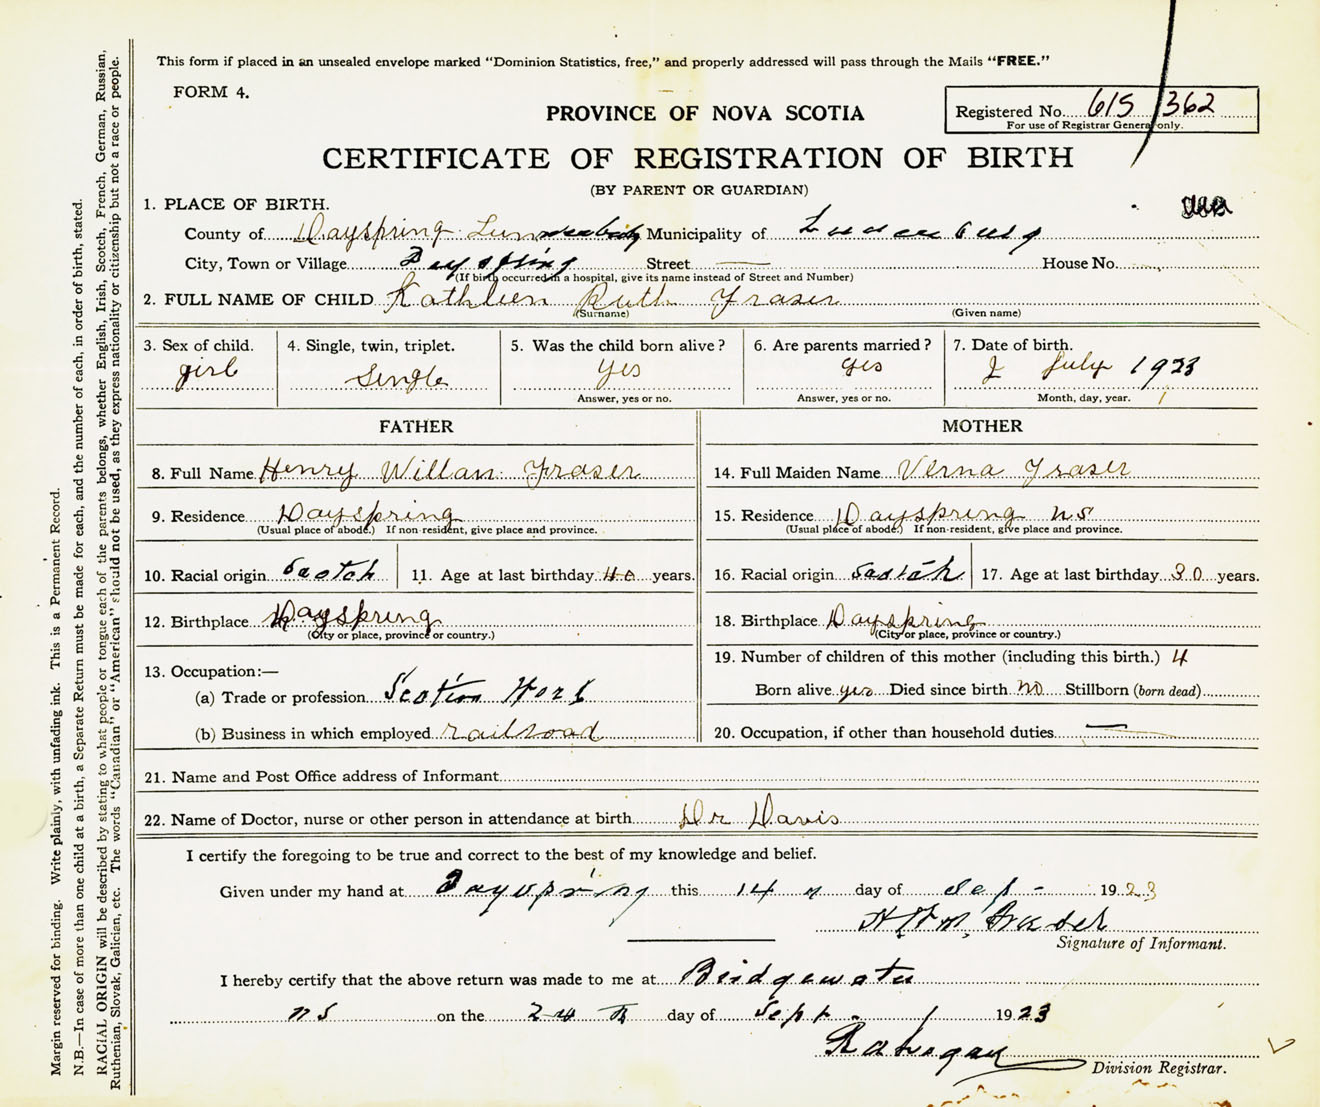 This form if placed in an unsealed envelope marked "Dominion Statistics, free," and properly addressed will pass through the Mails "FREE."
FORM 4.
PROVINCE OF NOVA SCOTIA
Registered No. 615 362
For use of Registrar General only.
CERTIFICATE OF REGISTRATION OF BIRTH
(BY PARENT OR GUARDIAN)
1. PLACE OF BIRTH.
County of Dayspring Municipality of Lunenburg
City, Town or Village Dayspring Street — House No.
(If birth occurred in a hospital, give its name instead of Street and Number)
2. FULL NAME OF CHILD Kathleen Ruth Fraser
(Surname) (Given name)
3. Sex of child. 4. Single, twin, triplet. 5. Was the child born alive? 6. Are parents married? 7. Date of birth.
girl Single yes yes July 1923
Answer, yes or no. Answer, yes or no. Month, day, year.
FATHER MOTHER
8. Full Name Henry Willan Fraser 14. Full Maiden Name Verna Fraser
9. Residence Dayspring 15. Residence Dayspring NS
(Usual place of abode.) If non-resident, give place and province. (Usual place of abode.) If non-resident, give place and province.
10. Racial origin Scotch 11. Age at last birthday 40 years. 16. Racial origin Scotch 17. Age at last birthday 30 years.
12. Birthplace Dayspring 18. Birthplace Dayspring
(City or place, province or country.) (City or place, province or country.)
13. Occupation:— 19. Number of children of this mother (including this birth.) 4
(a) Trade or profession Section Born alive yes Died since birth no Stillborn (born dead)
(b) Business in which employed railroad 20. Occupation, if other than household duties —
21. Name and Post Office address of Informant
22. Name of Doctor, nurse or other person in attendance at birth Dr Davis
I certify the foregoing to be true and correct to the best of my knowledge and belief.
Given under my hand at Dayspring this 14 day of Sep - 1923
H. Wm. Fraser
Signature of Informant.
I hereby certify that the above return was made to me at Bridgewater
NS on the 24 th day of Sept. 1923
Division Registrar.
Margin reserved for binding. Write plainly, with unfading ink. This is a Permanent Record.
N.B.—In case of more than one child at a birth, a Separate Return must be made for each, and the number of each, in order of birth, stated.
RACIAL ORIGIN will be described by stating to what people or tongue each of the parents belongs, whether English, Irish, Scotch, French, German, Russian,
Ruthenian, Slovak, Galician, etc. The words "Canadian" or "American" should not be used, as they express nationality or citizenship but not a race or people.